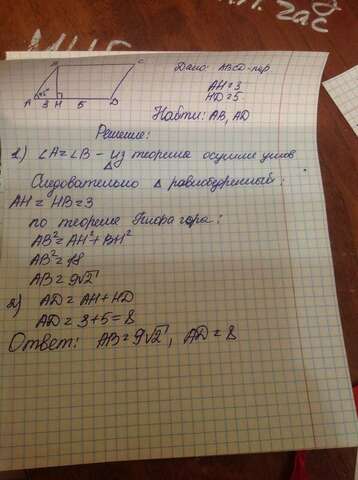 B C
45°
A 3 H 5 D
Дано: ABCD-пар.
AH=3
HD=5
Найти: AB, AD
Решение:
1) ∠A=∠B - из теоремы о сумме углов
Δ
Следовательно Δ равнобедренный:
AH = HB = 3
по теореме Пифагора:
AB²=AH²+BH²
AB²=18
AB=9√2
2) AD=AH+HD
AD=3+5=8
Ответ: AB=9√2, AD=8